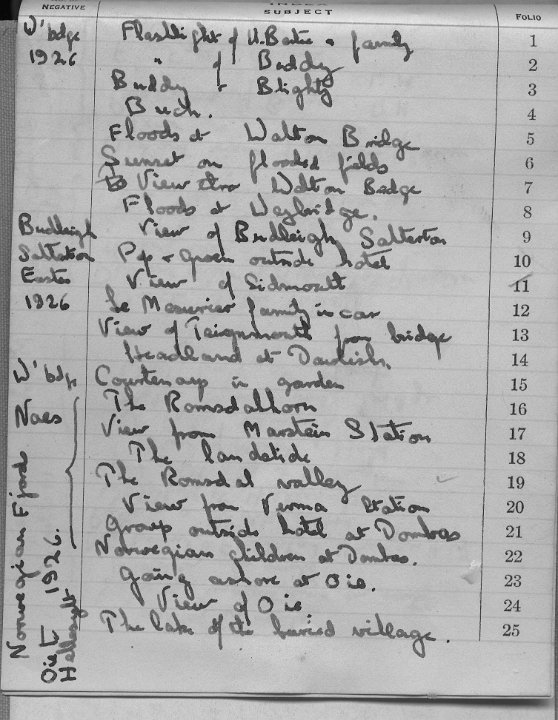 NEGATIVE INDEX SUBJECT FOLIO
W'bdge Flashlight of U. Batie & family 1
1926 " of Buddy 2
Buddy & Blighty 3
Buch. 4
Floods at Walton Bridge 5
Sunset on flooded fields 6
View thro Walton Bridge 7
Floods at Weybridge. 8
Budleigh View of Budleigh Salterton 9
Salterton Pop & Gwen outside hotel 10
Easter View of Sidmouth 11
1926 Le Mesurier family in car 12
View of Teignmouth from bridge 13
Headland at Dawlish. 14
W'bdge Courtenays in garden 15
Naes The Romsdalhorn 16
View from Marstein Station 17
The landslide 18
The Romsdal valley 19
View from Verma Station 20
Group outside hotel at Dombas 21
Norwegian children at Dombas. 22
Going ashore at Oie. 23
View of Oie 24
The lake of the buried village. 25
Norwegian Fjords
1926.
Oie
Hellesylt